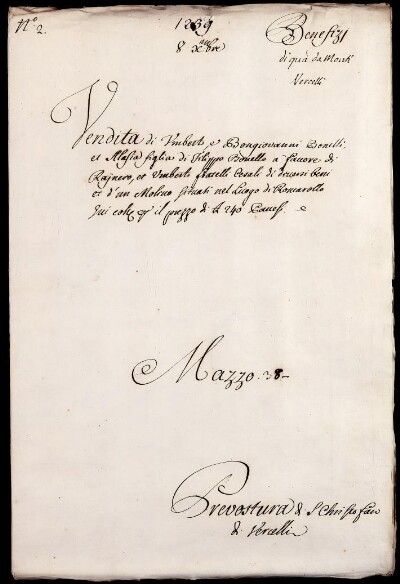 N.° 2.
1239
8 Xbre
Benefizj
di quà da Monti
Vercelli
Vendita di Umberto, e Bongiovanni Bonelli,
et Alasia figlia di Filippo Bonello a favore di
Rajnero, et Umberto fratelli di diversi beni
et d'un Molino situati nel Luogo di
per il prezzo di 240
Mazzo 38
Prevostura di S. Christoforo
di Vercelli